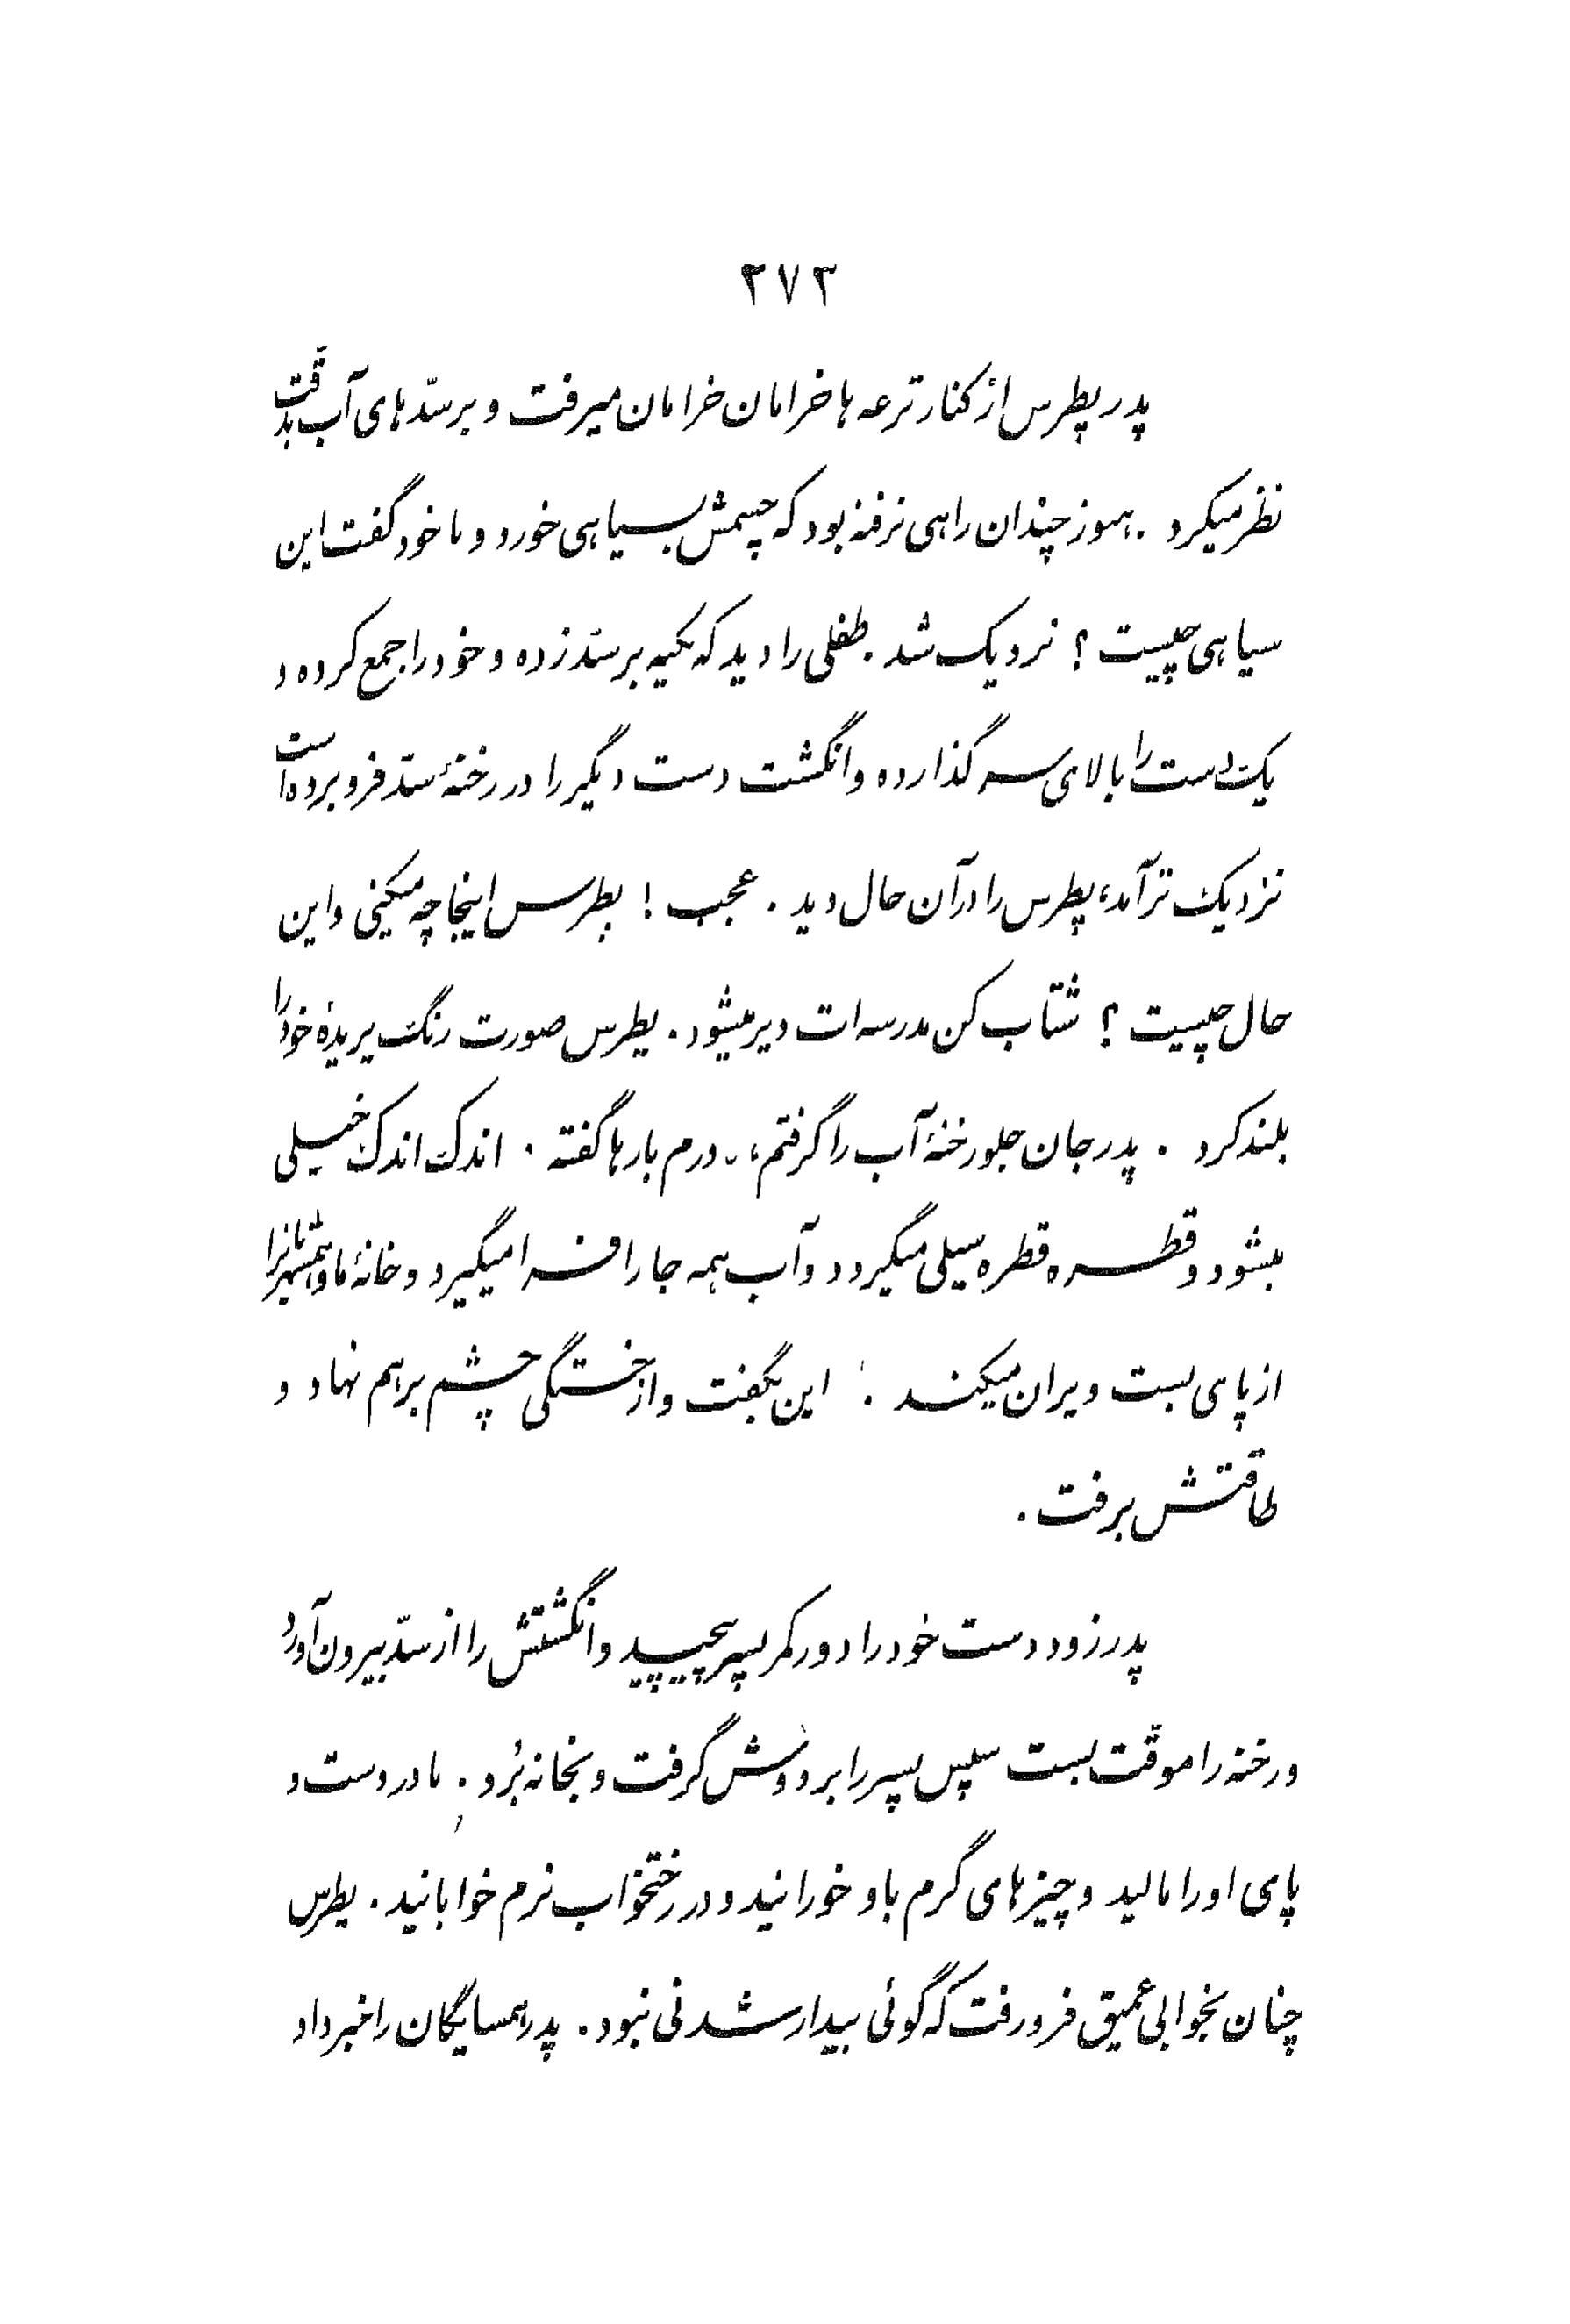 ۲۷۳
پدر پطرس از کنار ترعه ها خرامان خرامان میرفت و بر سدّهای آب بدقّت
نظر میکرد . هنوز چندان راهی نرفته بود که چشمش بسیاهی خورد و با خود گفت این
سیاهی چیست ؟ نزدیک شد . طفلی را دید که تکیه بر سدّ زده و خود را جمع کرده و
یک دست را بالای سر گذارده و انگشت دست دیگر را در رخنهٔ سدّ فرو برده است
نزدیک تر آمد ، پطرس را در آن حال دید . عجب ! پطرس اینجا چه میکنی و این
حال چیست ؟ شتاب کن مدرسه ات دیر میشود . پطرس صورت رنگ پریدهٔ خود را
بلند کرد . پدر جان جلو رخنهٔ آب را گرفتم ، پدرم بارها گفته . اندک اندک خیلی
میشود و قطره قطره سیلی میگردد و آب همه جا را فرا میگیرد و خانهٔ ما و همشهریانرا
از پای بست ویران میکند . این بگفت و از خستگی چشم بر هم نهاد و
طاقتش برفت .
پدر زود دست خود را دور کمر پسر پیچید و انگشتش را از سدّ بیرون آورد
و رخنه را موقّت بست سپس پسر را بر دوش گرفت و بخانه بُرد . مادر دست و
پای او را مالید و چیزهای گرم باو خورانید و در رختخواب نرم خوابانید . پطرس
چنان بخوابی عمیق فرو رفت که گوئی بیدار شدنی نبود . پدر همسایگان را خبر داد